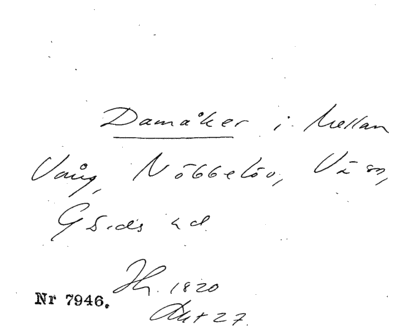 Damåker i Mellan
Vång, Nöbbelöv,
Gärds hd.
Hr. 1820
Akt 27.
Nr 7946.